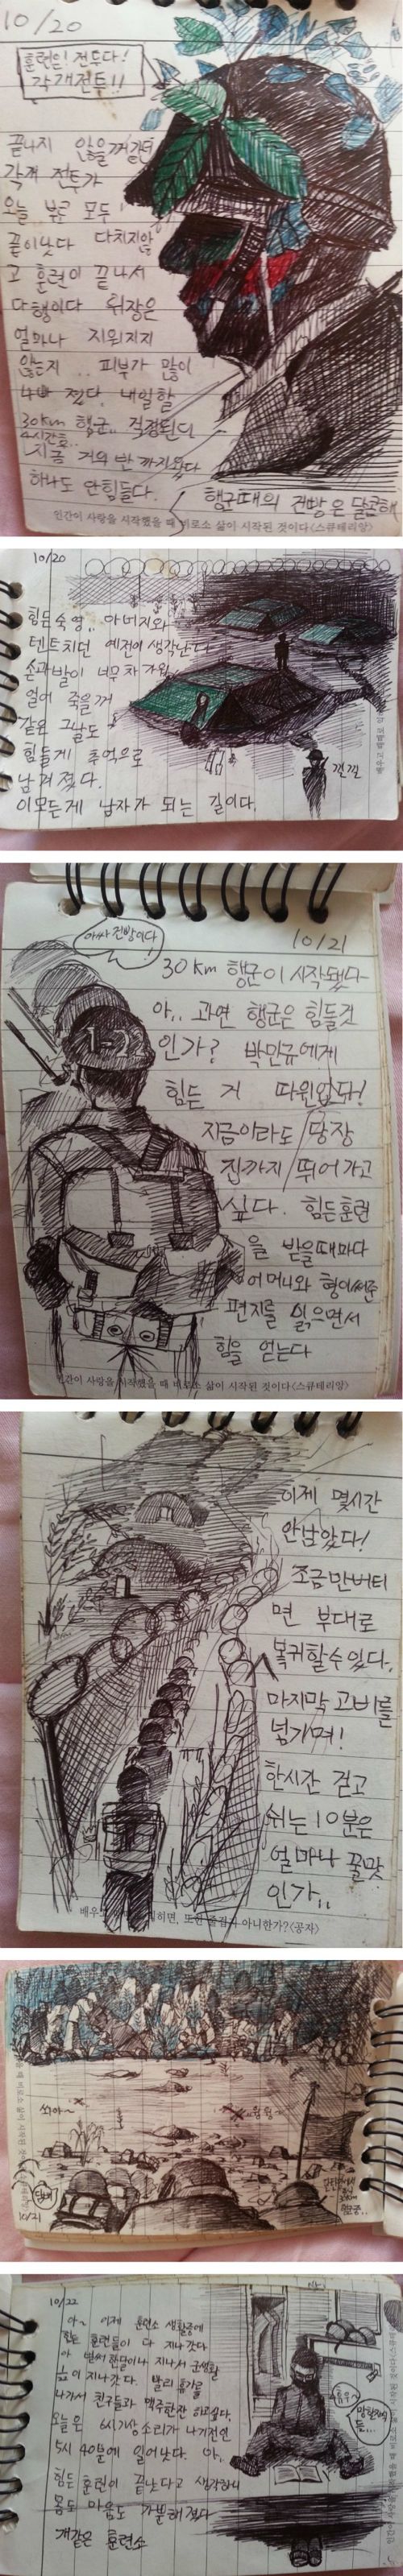 10/20
훈련은! 전투다!
각개전투!!
끝나지 않을꺼 같던
각개 전투가
오늘 부로 모두
끝이났다 다치지않
고 훈련이 끝나서
다행이다 위장은
얼마나 지워지지
않는지.. 피부가 많이
졌다. 내일할
30km 행군.. 걱정된다
4시간후..
지금 거의 반까지왔다
하나도 안힘들다.
행군때의 건빵은 달콤해
인간이 사랑을 시작했을 때 비로소 삶이 시작된 것이다<스큐테리앙>
10/20
힘든숙영.. 아버지와
텐트치던 예전이 생각난다
손과발이 너무차가워
얼어 죽을꺼
같은 그날도
힘들게 추억으로
남겨졌다.
이모든게 남자가 되는 길이다.
낄낄
아싸 건빵이다
10/21
30km 행군이 시작됐다
1-22
아.. 과연 행군은 힘들것
인가? 박민규에게
힘든 거 따윈없다!
지금이라도 당장
집까지 뛰어가고
싶다. 힘든훈련
을 받을때마다
어머니와 형이써준
편지를 읽으면서
힘을 얻는다
인간이 사랑을 시작했을 때 비로소 삶이 시작된 것이다<스큐테리앙>
이제 몇시간
안남았다!
조금만버티
면 부대로
복귀할수있다.
마지막 고비를
넘기며!
한시간 걷고
쉬는 10분은
얼마나 꿀맛
인가..
배우고 익히면, 또한 즐겁지 아니한가?<공자>
쏴아~
10/21
10/22
아~ 이제 훈련소 생활중에
힘든 훈련들이 다 지나갔다
아 벌써 한달이나 지나서 군생활
이 지나갔다. 빨리 휴가를
나가서 친구들과 맥주한잔 하고싶다.
오늘은 6시기상소리가 나기전인
5시 40분에 일어났다. 아,
힘든 훈련이 끝났다고 생각하니
몸도 마음도 가뿐해졌다
개같은 훈련소